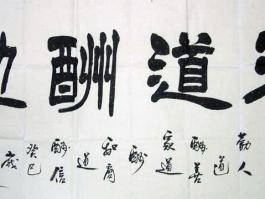 道酬
勤人
道酬善
家道
酬
和商
道
酬信
癸巳
歲